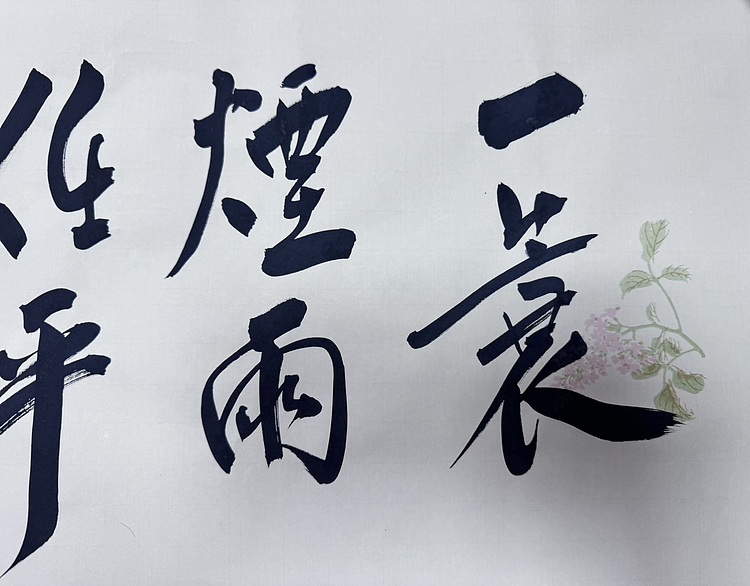 一蓑
煙雨
任平